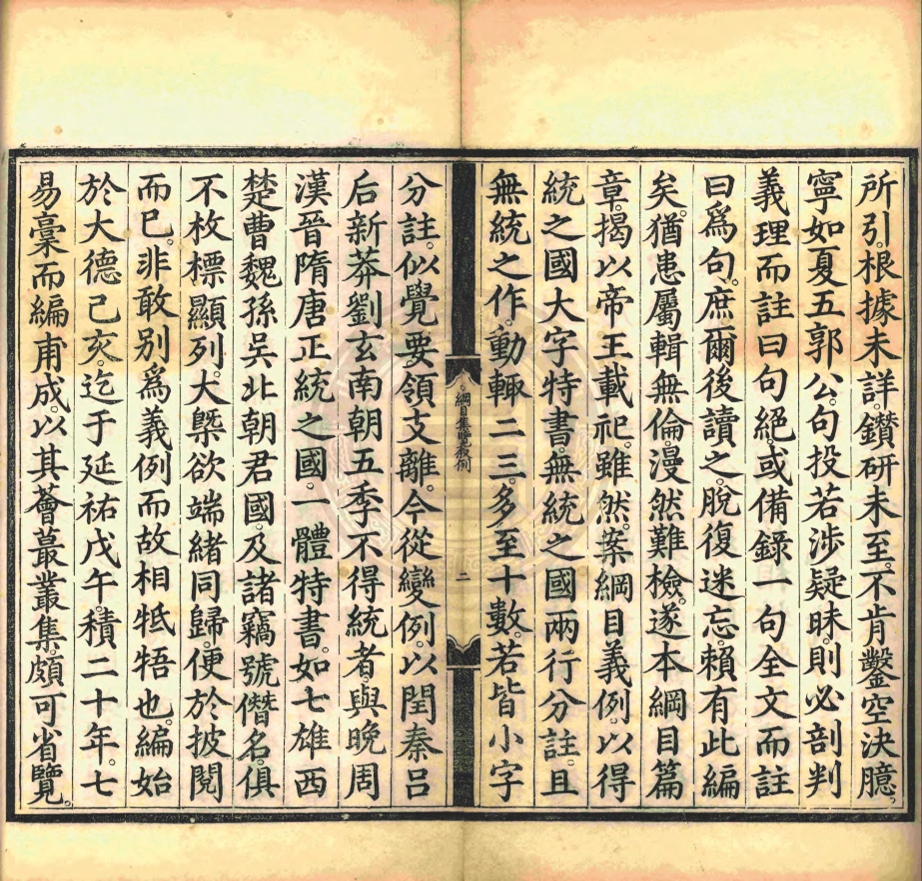 所引。根據未詳。鑽研未至。不肯鑿空決臆。
寧如夏五郭公。句投若涉疑昧。則必剖判
義理而註曰句絕。或備錄一句全文而註
曰爲句。庶爾後讀之。脫復迷忘。賴有此編
矣。猶患屬輯無倫。漫然難檢。遂本綱目篇
章。揭以帝王載祀。雖然。案綱目義例。以得
統之國大字特書。無統之國兩行分註。且
無統之作。動輙二三。多至十數。若皆小字
綱目集覽敘例
二
分註。似覺要領支離。今從變例。以閏秦呂
后新莽劉玄南朝五季不得統者。與晚周
漢晉隋唐正統之國。一體特書。如七雄西
楚曹魏孫吳北朝君國。及諸竊號僭名。俱
不枚標顯列。大槩欲端緒同歸。便於披閱
而已。非敢别爲義例而故相牴牾也。編始
於大德己亥。迄于延祐戊午。積二十年。七
易槀而編甫成。以其薈蕞叢集。頗可省覽。